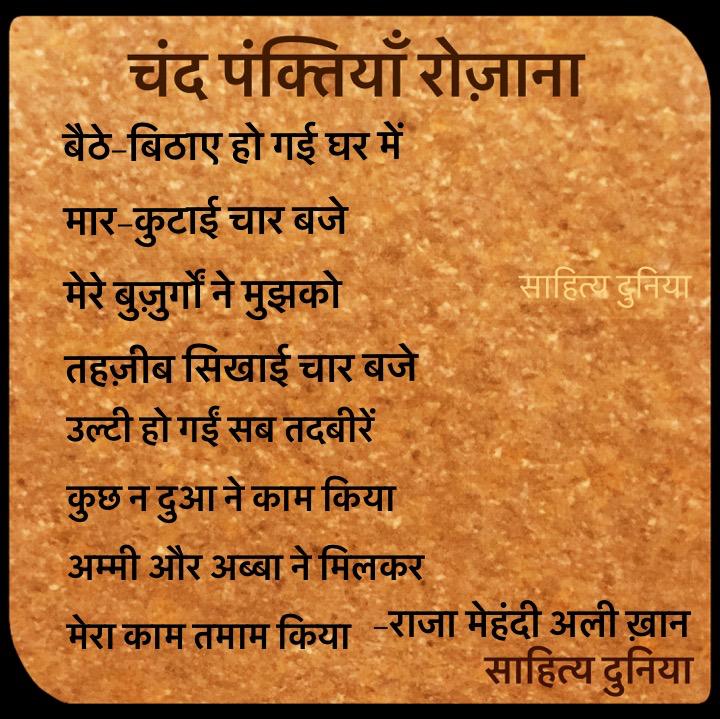 चंद पंक्तियाँ रोज़ाना
बैठे-बिठाए हो गई घर में
मार-कुटाई चार बजे
मेरे बुज़ुर्गों ने मुझको
साहित्य दुनिया
तहज़ीब सिखाई चार बजे
उल्टी हो गईं सब तदबीरें
कुछ न दुआ ने काम किया
अम्मी और अब्बा ने मिलकर
मेरा काम तमाम किया
-राजा मेहंदी अली ख़ान
साहित्य दुनिया